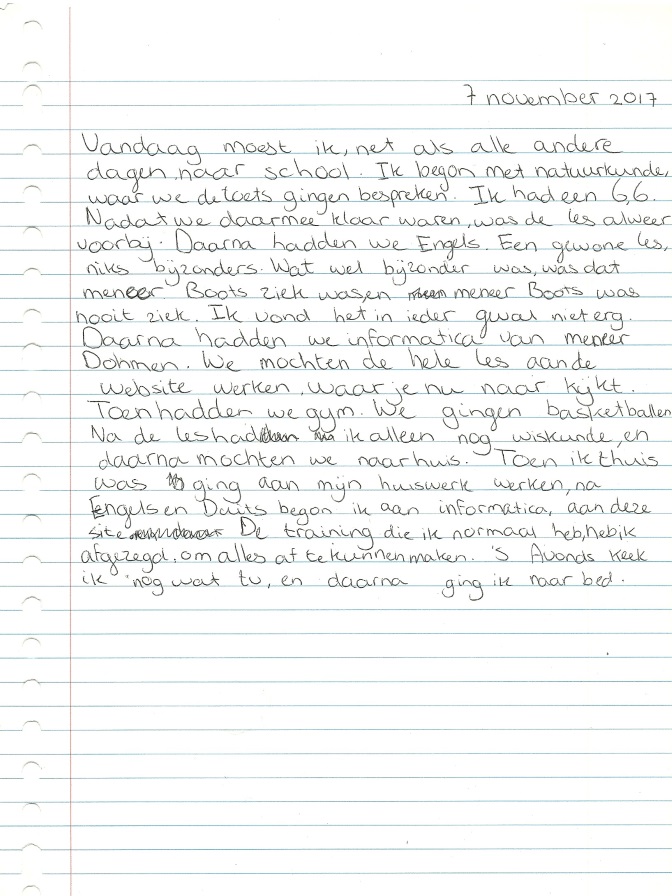 7 november 2017
Vandaag moest ik, net als alle andere
dagen, naar school. Ik begon met natuurkunde,
waar we de toets gingen bespreken. Ik had een 6,6.
Nadat we daarmee klaar waren, was de les alweer
voorbij. Daarna hadden we Engels. Een gewone les,
niks bijzonders. Wat wel bijzonder was, was dat
meneer Boots ziek was en meneer Boots was
nooit ziek. Ik vond het in ieder geval niet erg.
Daarna hadden we informatica van meneer
Dohmen. We mochten de hele les aan de
website werken, waar je nu naar kijkt.
Toen hadden we gym. We gingen basketballen
Na de les had ik alleen nog wiskunde, en
daarna mochten we naar huis. Toen ik thuis
was ging aan mijn huiswerk werken, na
Engels en Duits begon ik aan informatica, aan deze
site. De training die ik normaal heb, heb ik
afgezegd, om alles af te kunnen maken. 's Avonds keek
ik nog wat tv, en daarna ging ik naar bed.